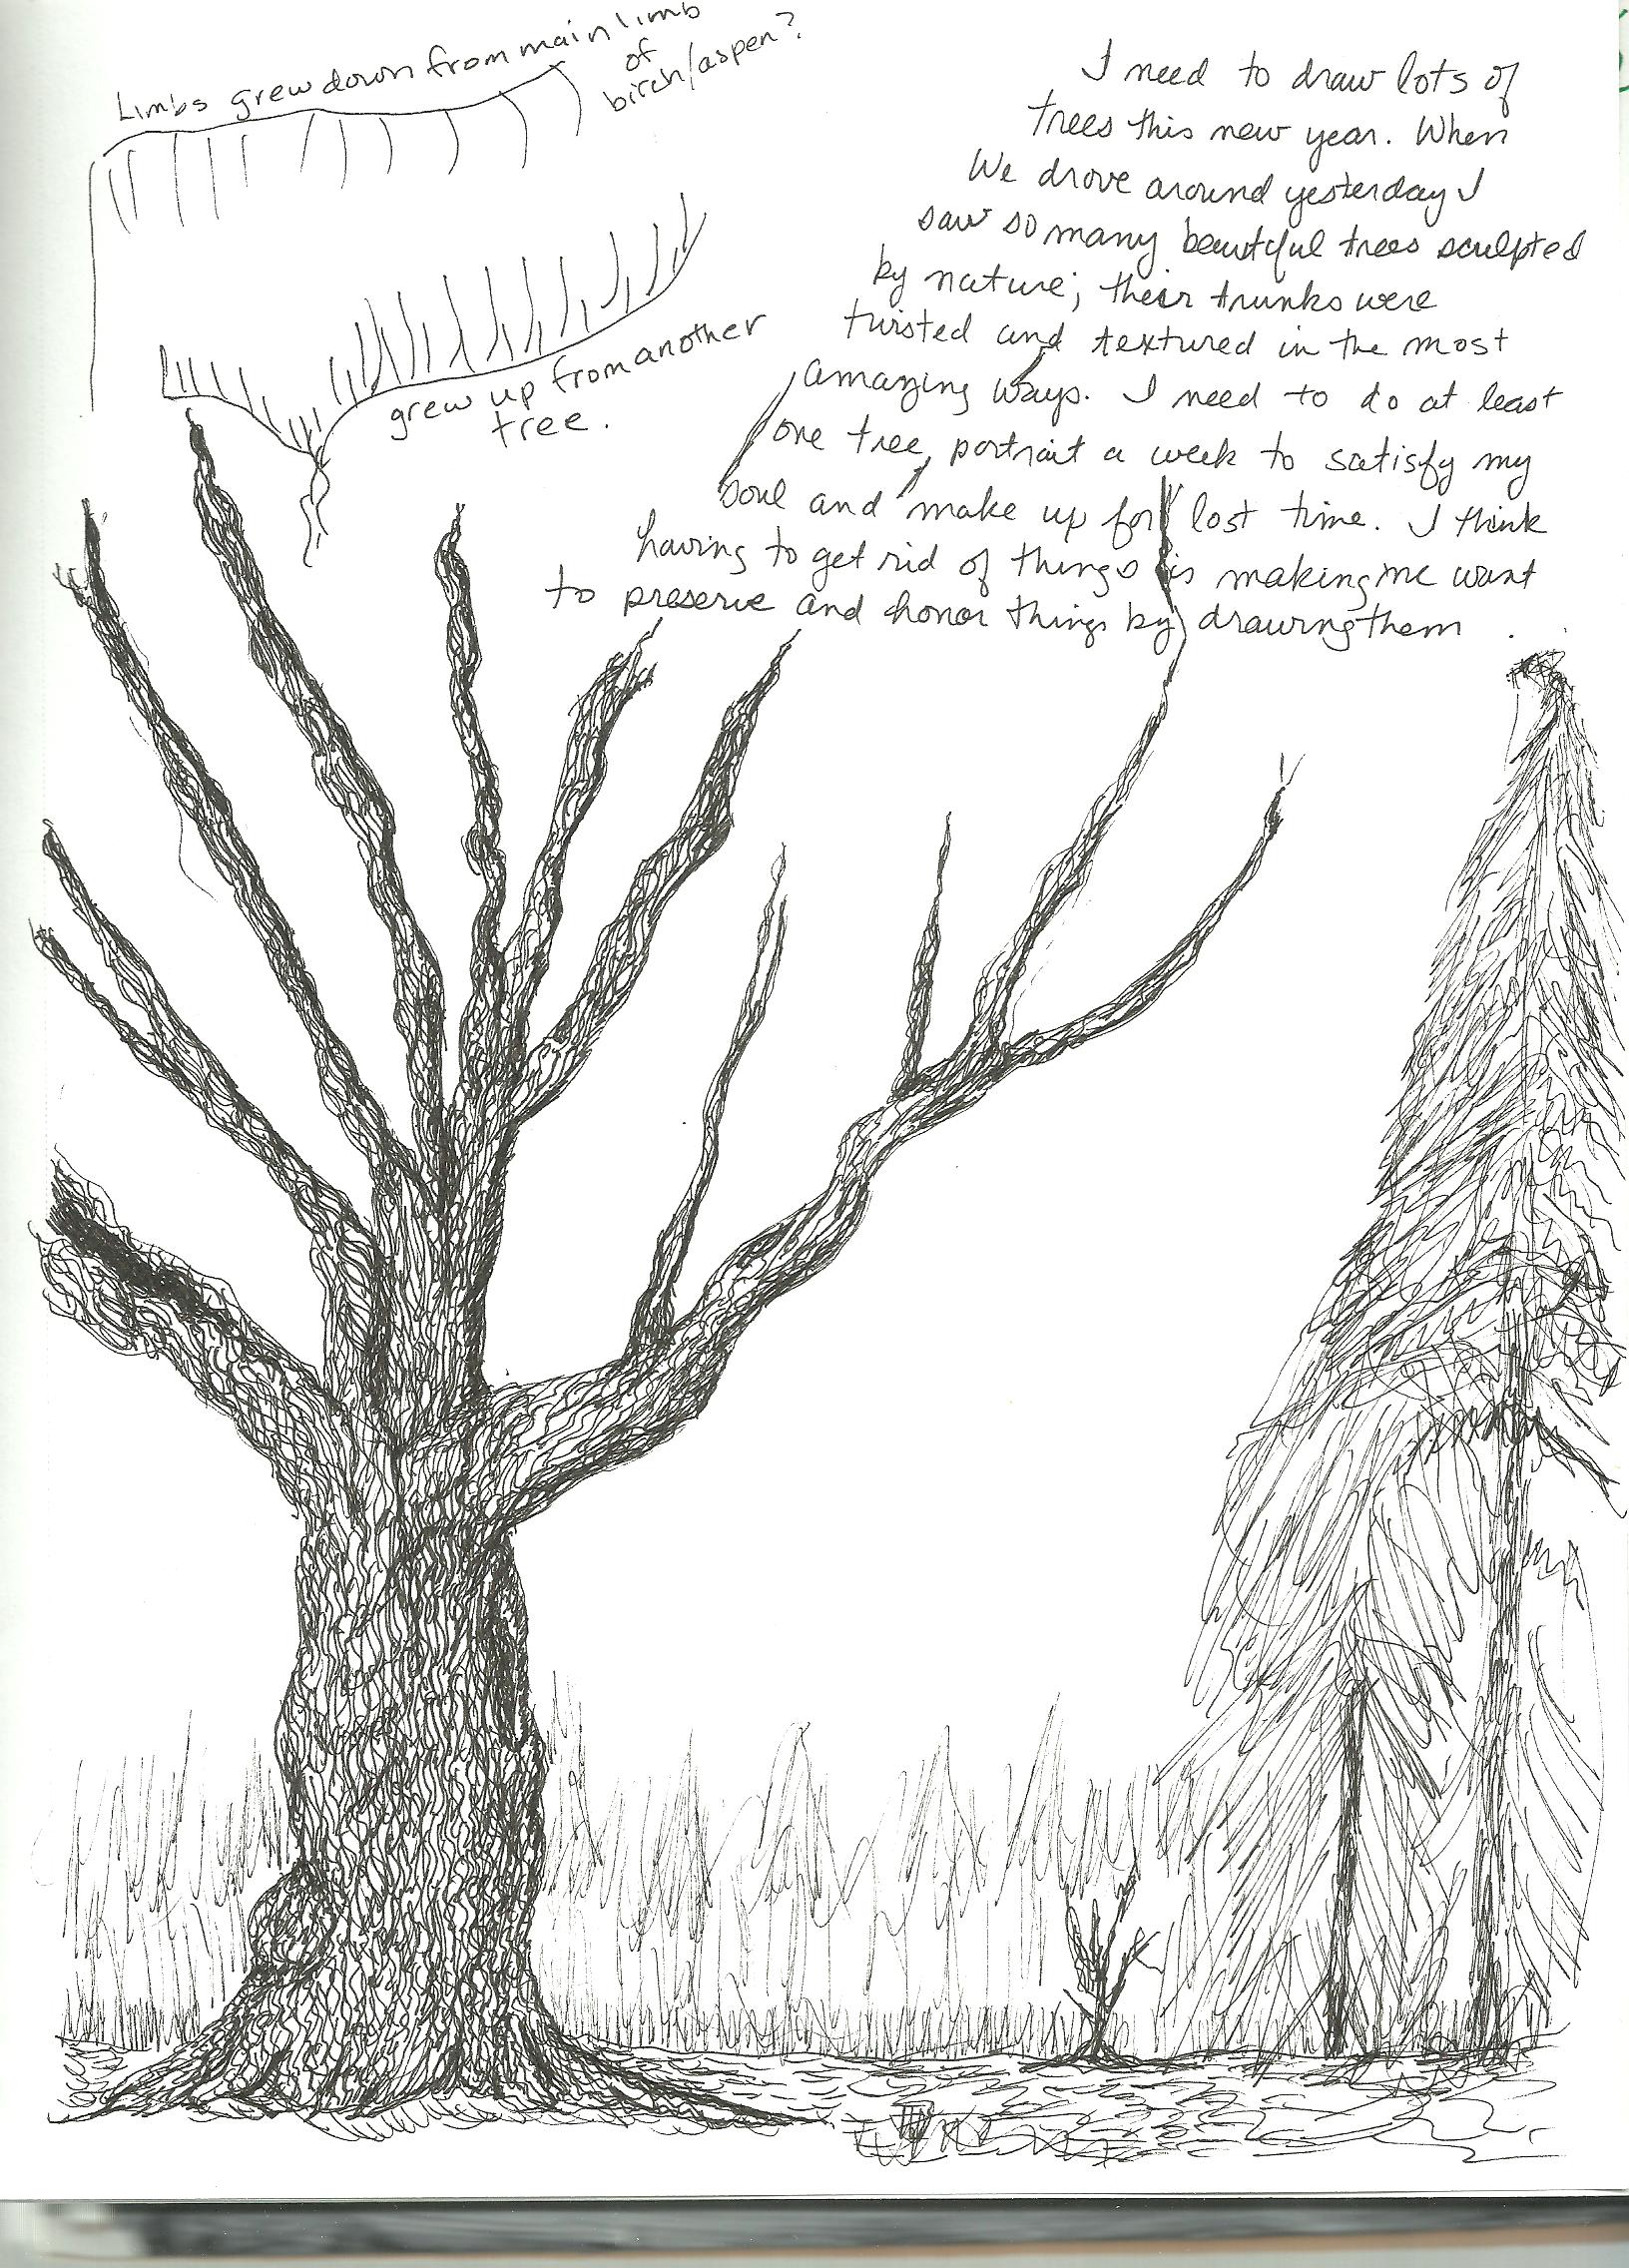 Limbs grew down from main limb
of
birch/aspen?
grew up from another
tree.
I need to draw lots of
trees this new year. When
We drove around yesterday I
saw so many beautiful trees sculpted
by nature; their trunks were
twisted and textured in the most
amazing ways. I need to do at least
one tree portrait a week to satisfy my
soul and make up for lost time. I think
having to get rid of things is making me want
to preserve and honor things by drawing them.